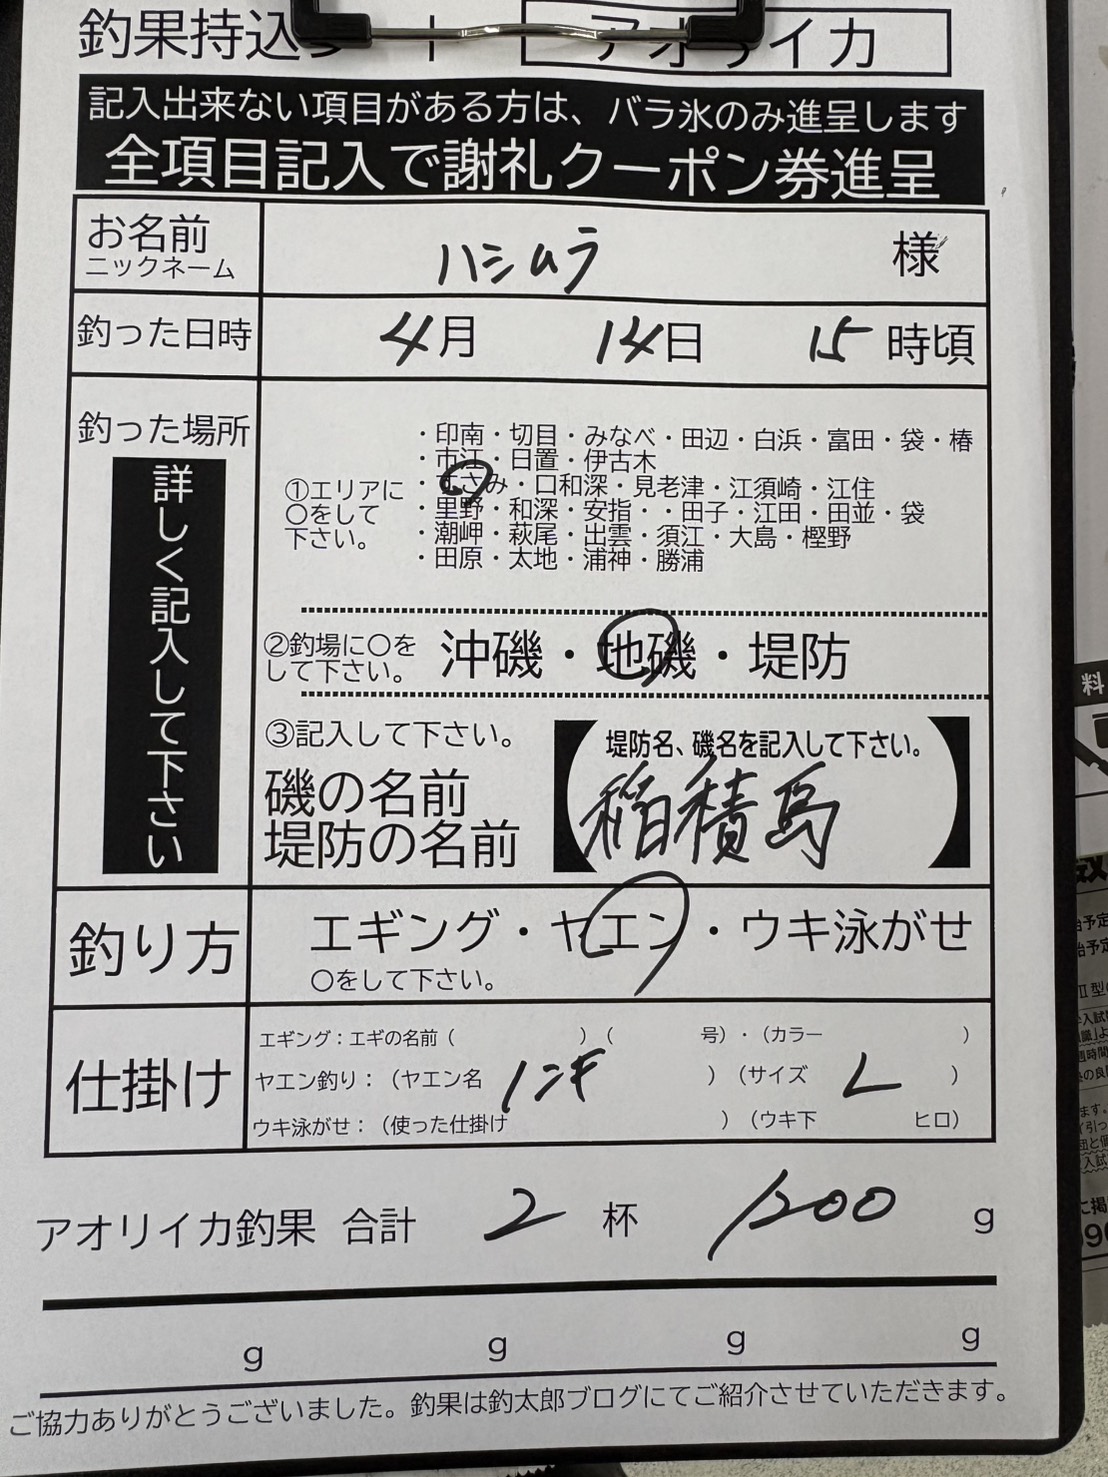 釣果持込
アオリイカ
記入出来ない項目がある方は、バラ氷のみ進呈します
全項目記入で謝礼クーポン券進呈
お名前
ニックネーム
ハシムラ 様
釣った日時
4月 14日 15時頃
釣った場所
詳しく記入して下さい
①エリアに
〇をして
下さい。
・印南・切目・みなべ・田辺・白浜・富田・袋・椿
・市江・日置・伊古木
・すさみ・口和深・見老津・江須崎・江住
・里野・和深・安指・・田子・江田・田並・袋
・潮岬・萩尾・出雲・須江・大島・樫野
・田原・太地・浦神・勝浦
②釣場に〇を
して下さい。
沖磯・地磯・堤防
③記入して下さい。
磯の名前
堤防の名前
【堤防名、磯名を記入して下さい。
稲積島】
釣り方
エギング・ヤエン・ウキ泳がせ
〇をして下さい。
仕掛け
エギング：エギの名前（ ）（ 号）・（カラー ）
ヤエン釣り：（ヤエン名 ）（サイズ L ）
ウキ泳がせ：（使った仕掛け ）（ウキ下 ヒロ）
アオリイカ釣果 合計 2 杯 1200 g
g g g g
ご協力ありがとうございました。釣果は釣太郎ブログにてご紹介させていただきます。
料